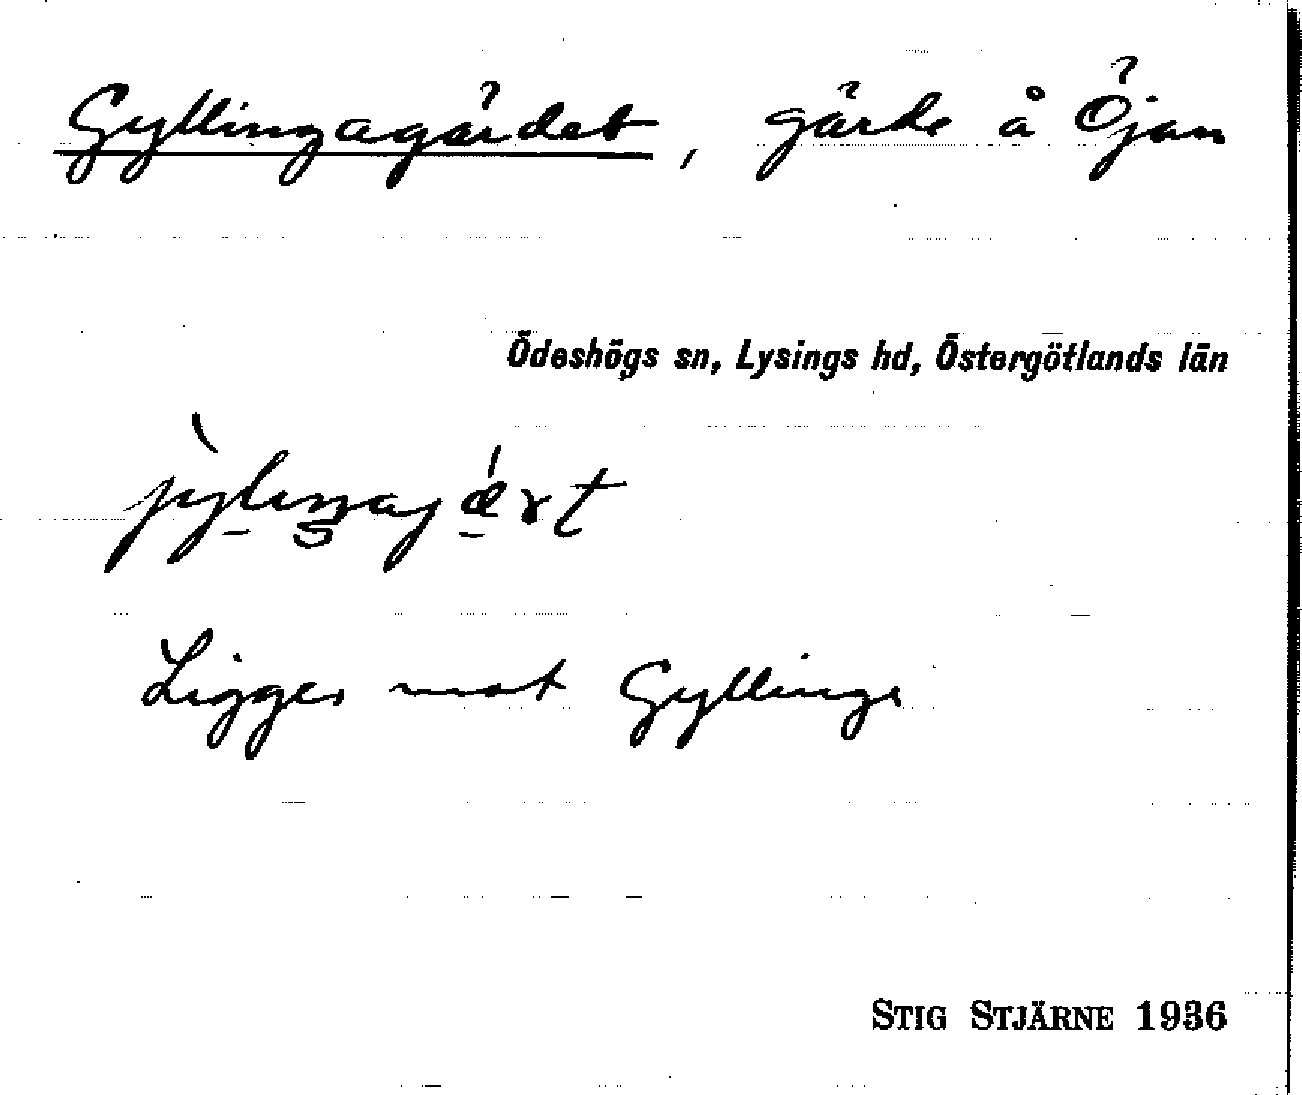 Gyllingagärdet, gärde å Öjan
Ödeshögs sn, Lysings hd, Östergötlands län
Ligger mot Gyllinge
STIG STJÄRNE 1936